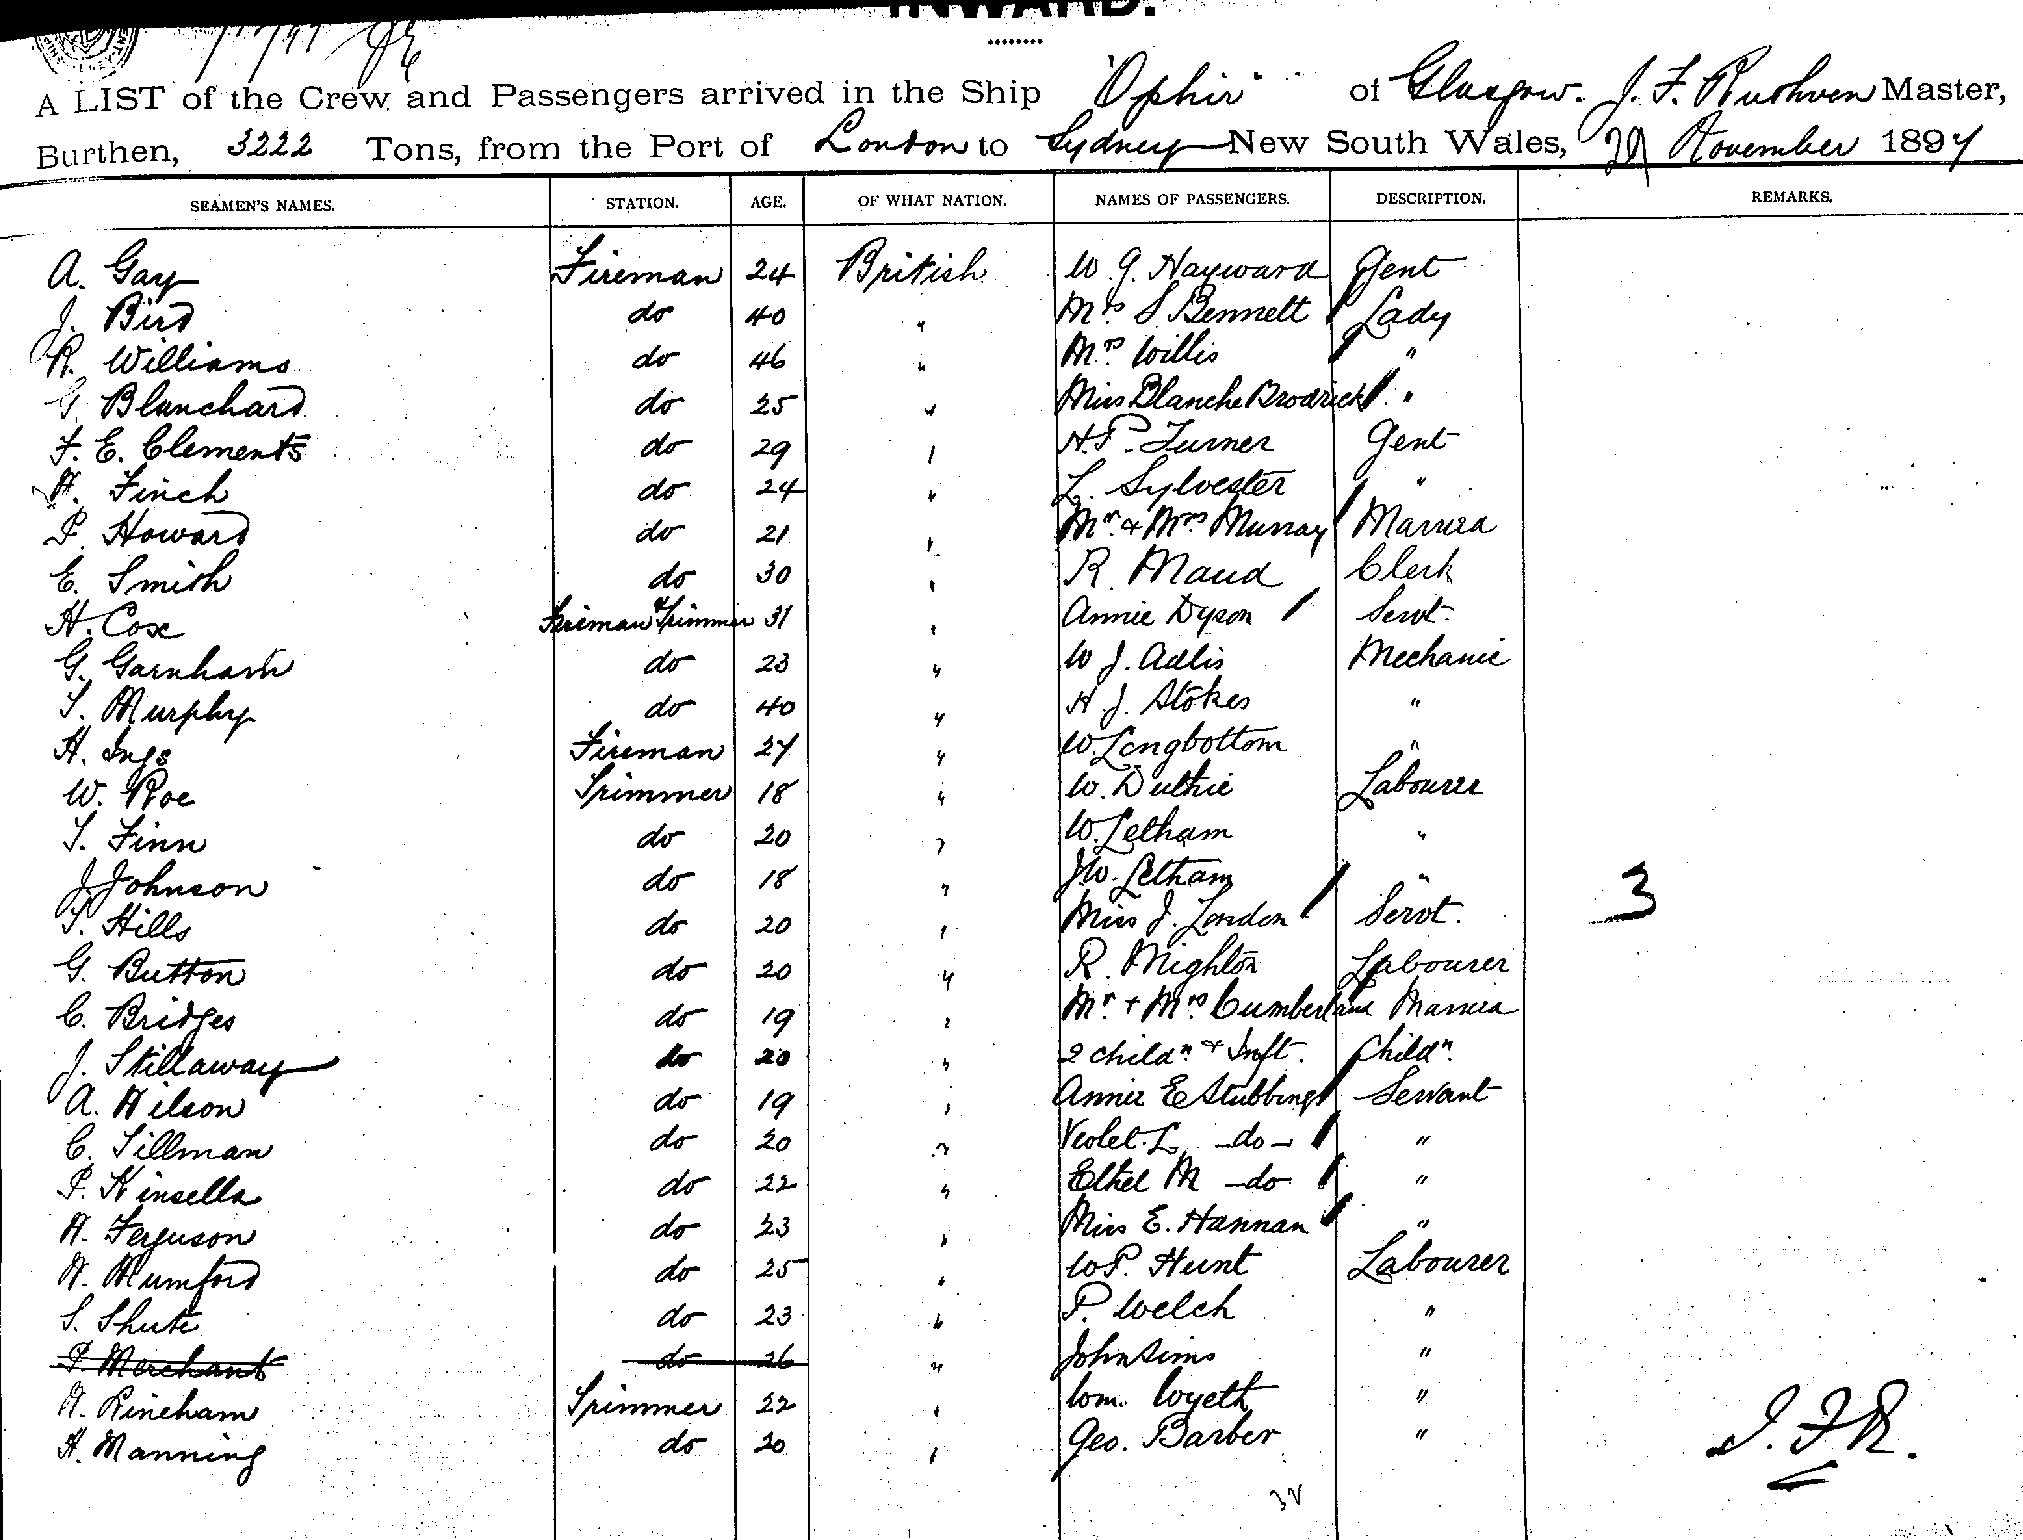 INWARD.
A LIST of the Crew and Passengers arrived in the Ship "Ophir" of Glasgow. J. F. Ruthven Master,
Burthen, 3222 Tons, from the Port of London to Sydney New South Wales, 29 November 1897
SEAMEN'S NAMES. STATION. AGE. OF WHAT NATION. NAMES OF PASSENGERS. DESCRIPTION. REMARKS.
A. Gay Fireman 24 British W. G. Hayward Gent
J. Bird do 40 " Mrs S Bennett Lady
R. Williams do 46 " Mrs Willis "
G Blanchard do 25 " Miss Blanche Brodrick "
F. E. Clements do 29 " H. P. Turner Gent
H. Finch do 24 " L. Sylvester "
P. Howard do 21 " Mr & Mrs Murray Married
E. Smith do 30 " R. Maud Clerk
H. Cox Fireman & Trimmer 31 " Annie Dyson Servt.
G. Garnham do 23 " W J. Adlis Mechanic
T. Murphy do 40 " H. J. Stokes "
H. Ings Fireman 27 " W. Longbottom "
W. Roe Trimmer 18 " W. Duthie Labourer
T. Finn do 20 " W. Letham "
J. Johnson do 18 " J W. Letham "
T. Hills do 20 " Miss J. London Servt. 3
G. Button do 20 " R. Mighton Labourer
C. Bridges do 19 " Mr + Mrs Cumberland Married
J. Stillaway do 20 " 2 childn + Inft. Childn.
A. Wilson do 19 " Annie E Stubbings Servant
C. Tillman do 20 " Violet L -do- "
P. Kinsella do 22 " Ethel M -do- "
A. Ferguson do 23 " Miss E. Hannan "
W. Mumford do 25 " W P. Hunt Labourer
S. Shute do 23 " P. Welch "
P. Merchant do 26 " John Sims "
W. Rincham Trimmer 22 " Wm. Wyeth "
H. Manning do 20 " Geo. Barber "
J. F. R.